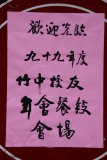 歡迎蒞臨
九十九年度
竹中校友
年會餐敍
會場